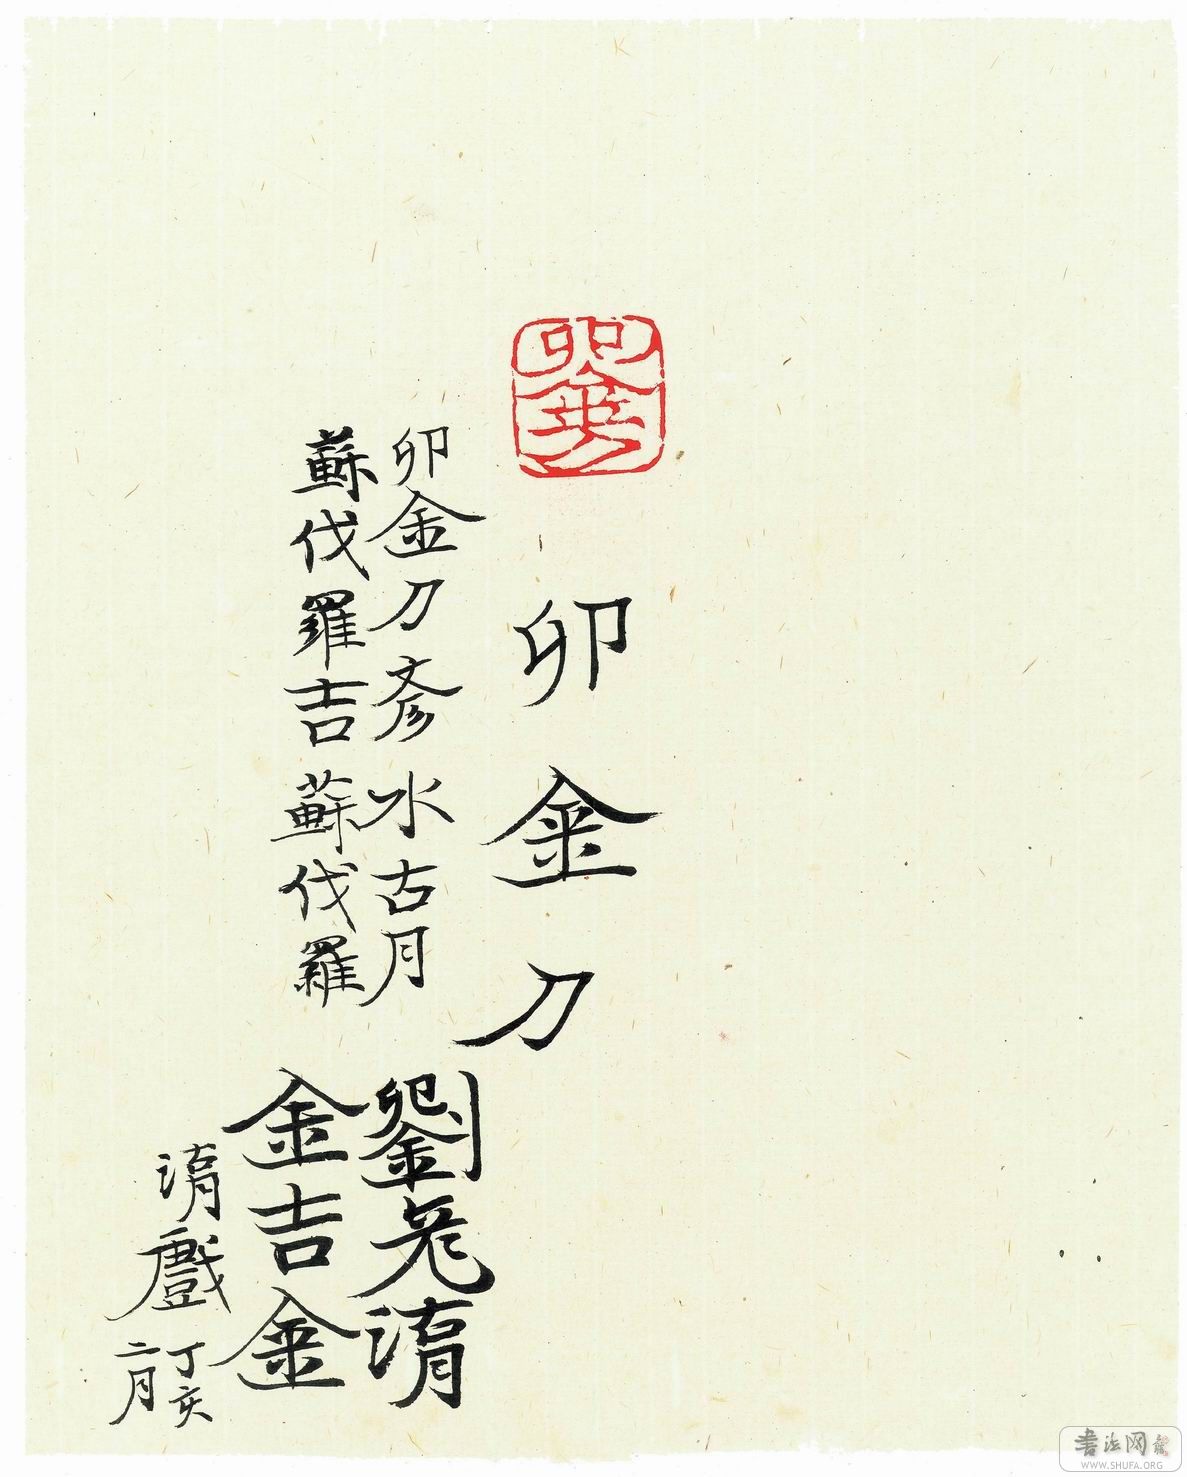 卯金刀
卯金刀彥水古月
劉老湖
蘇伐羅吉蘇伐羅
金吉金
湖戲
丁亥
二月
書法网
WWW.SHUFA.ORG